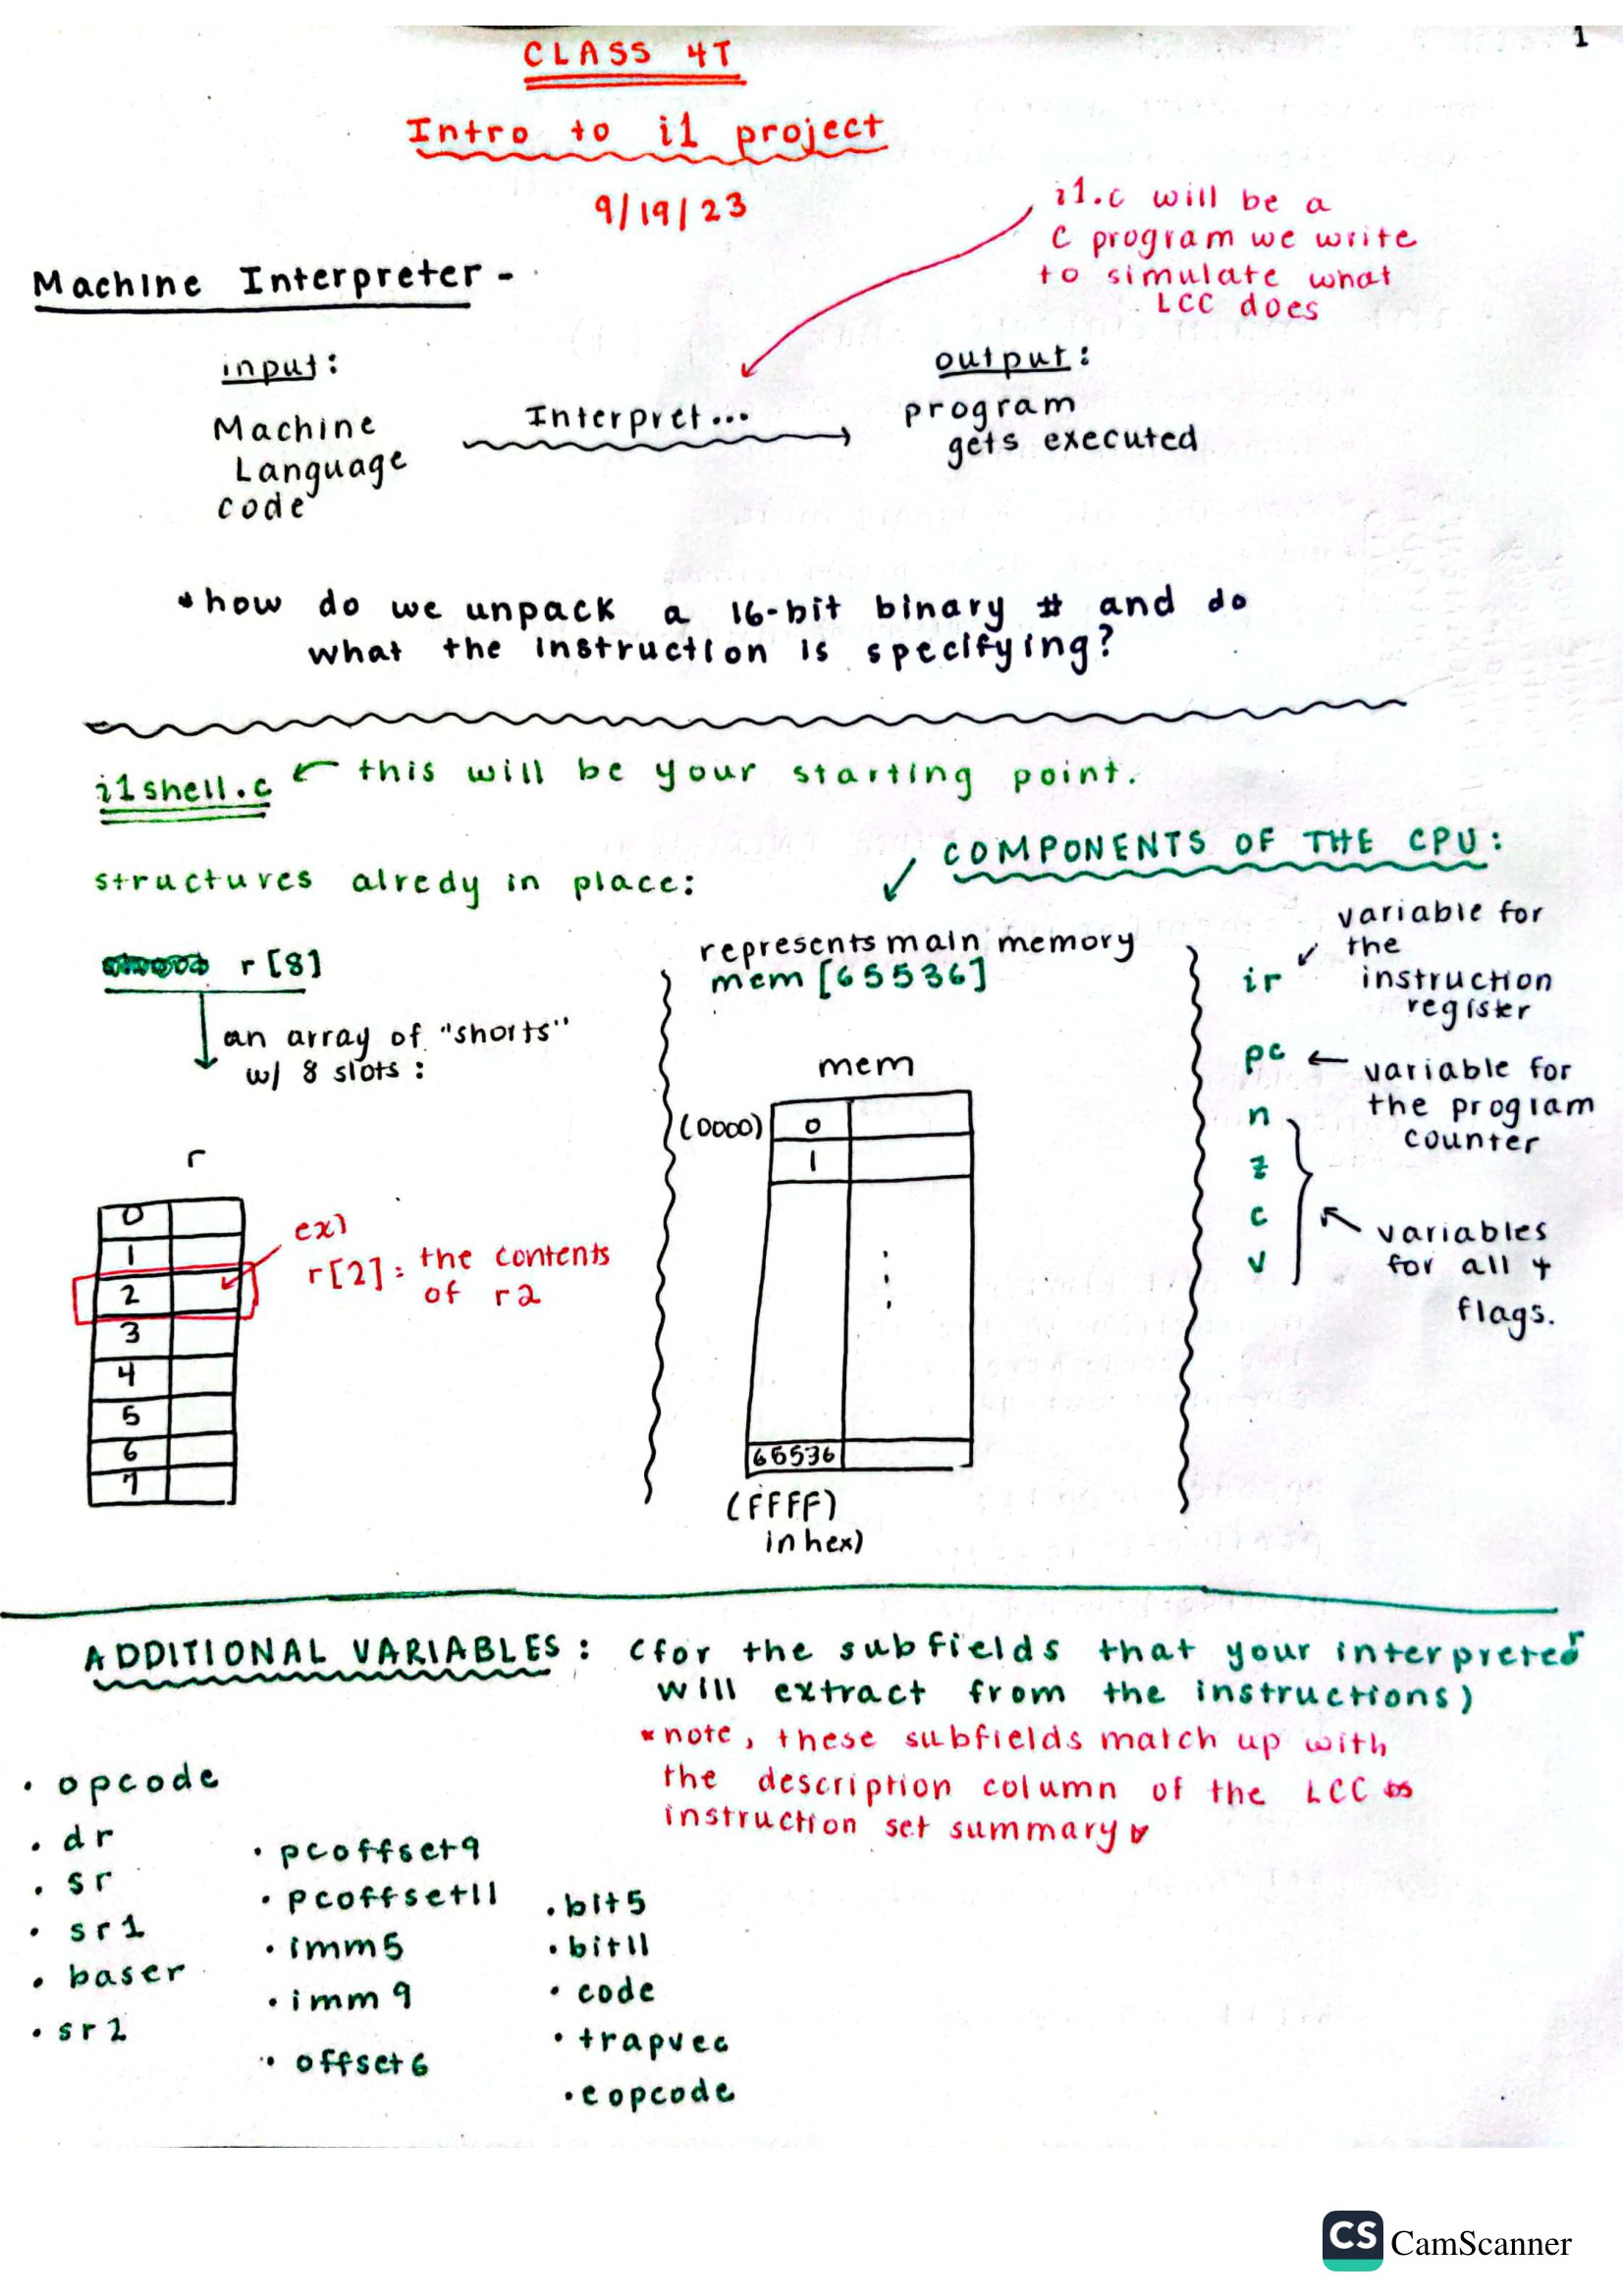 1
CLASS 4T
Intro to i1 project
9/19/23
i1.c will be a
C program we write
to simulate what
LCC does
Machine Interpreter -
input:
Machine
Language
code
Interpret...
output:
program
gets executed
*how do we unpack a 16-bit binary # and do
what the instruction is specifying?
i1shell.c ← this will be your starting point.
structures alredy in place:
COMPONENTS OF THE CPU:
r[8]
an array of "shorts"
w/ 8 slots:
r
0
1
2
3
4
5
6
7
ex)
r[2]: the contents
of r2
represents main memory
mem [65536]
mem
(0000)
0
1
65536
(FFFF)
in hex)
ir
variable for
the
instruction
register
pc ← variable for
the program
counter
n
z
c
v
variables
for all 4
flags.
ADDITIONAL VARIABLES: (for the subfields that your interpreter
will extract from the instructions)
*note, these subfields match up with
the description column of the LCC
instruction set summary
• opcode
• dr
• sr
• sr1
• baser
• sr2
• pcoffset9
• pcoffset11
• imm5
• imm9
• offset6
• bit5
• bit11
• code
• trapvec
• eopcode
CS CamScanner